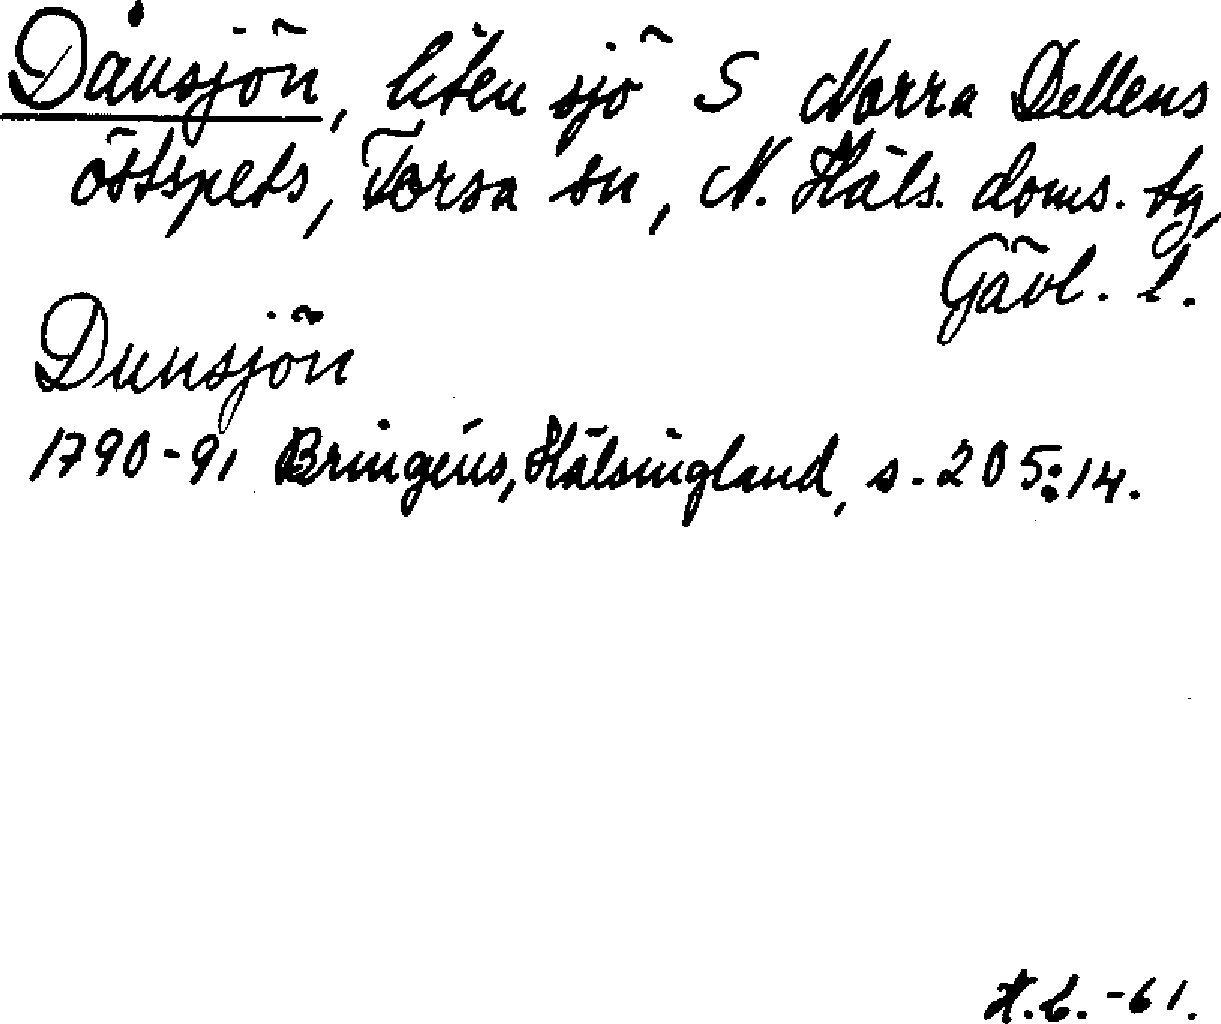 Dånsjön, liten sjö S Norra Dellens
östspets, Forsa sn, N. Häls. doms. tg,
Gävl. l.
Dunsjön
1790-91 Bringéus, Hälsingland, s. 205:14.
H.C. -61.